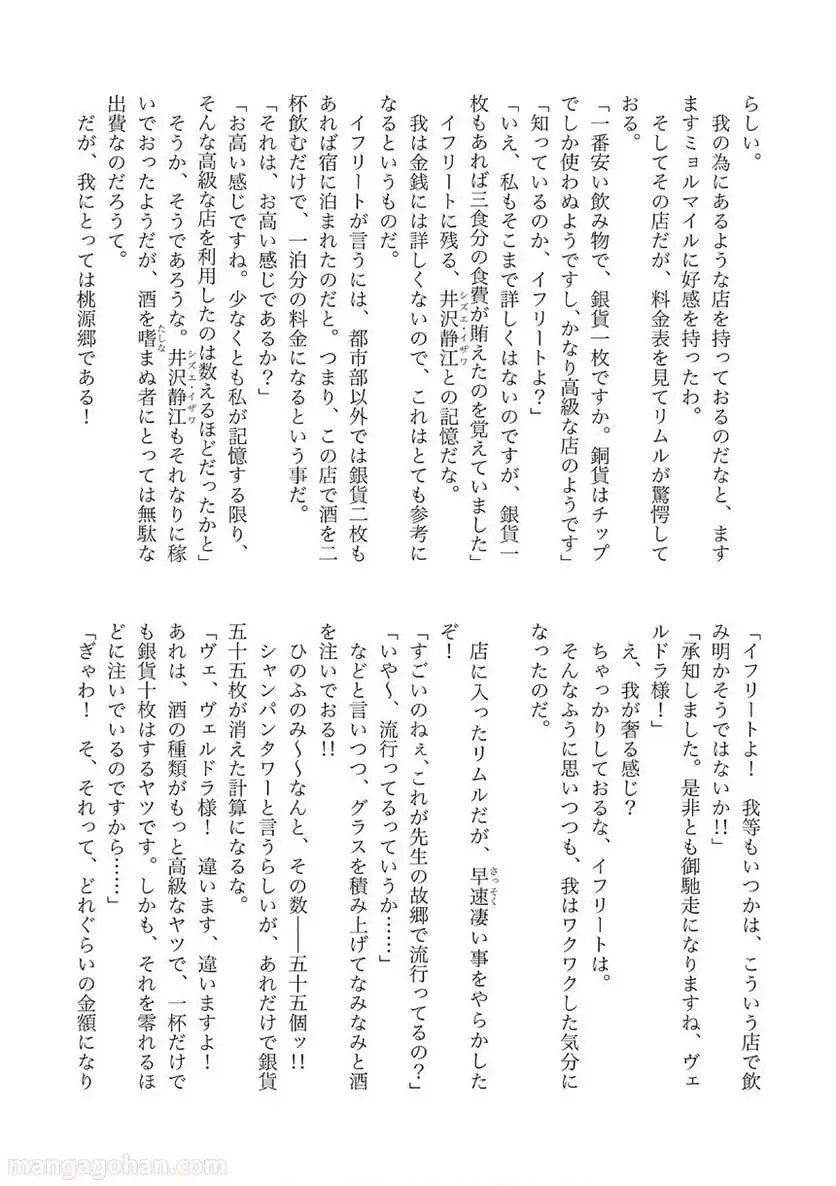 らしい。
　我の為にあるような店を持っておるのだなと、ます
ますミョルマイルに好感を持ったわ。
　そしてその店だが、料金表を見てリムルが驚愕して
おる。
「一番安い飲み物で、銀貨一枚ですか。銅貨はチップ
でしか使わぬようですし、かなり高級な店のようです」
「知っているのか、イフリートよ？」
「いえ、私もそこまで詳しくはないのですが、銀貨一
枚もあれば三食分の食費が賄えたのを覚えていました」
　イフリートに残る、井沢静江シズエ・イザワとの記憶だな。
　我は金銭には詳しくないので、これはとても参考に
なるというものだ。
　イフリートが言うには、都市部以外では銀貨二枚も
あれば宿に泊まれたのだと。つまり、この店で酒を二
杯飲むだけで、一泊分の料金になるという事だ。
「それは、お高い感じであるか？」
「お高い感じですね。少なくとも私が記憶する限り、
そんな高級な店を利用したのは数えるほどだったかと」
　そうか、そうであろうな。井沢静江シズエ・イザワもそれなりに稼
いでおったようだが、酒を嗜たしなまぬ者にとっては無駄な
出費なのだろうて。
　だが、我にとっては桃源郷である！
「イフリートよ！　我等もいつかは、こういう店で飲
み明かそうではないか!!」
「承知しました。是非とも御馳走になりますね、ヴェ
ルドラ様！」
　え、我が奢る感じ？
　ちゃっかりしておるな、イフリートは。
　そんなふうに思いつつも、我はワクワクした気分に
なったのだ。
　店に入ったリムルだが、早速さっそく凄い事をやらかした
ぞ！
「すごいのねぇ、これが先生の故郷で流行ってるの？」
「いや〜、流行ってるっていうか……」
　などと言いつつ、グラスを積み上げてなみなみと酒
を注いでおる!!
　ひのふのみ〜〜なんと、その数――五十五個ッ!!
　シャンパンタワーと言うらしいが、あれだけで銀貨
五十五枚が消えた計算になるな。
「ヴェ、ヴェルドラ様！　違います、違いますよ！
あれは、酒の種類がもっと高級なヤツで、一杯だけで
も銀貨十枚はするヤツです。しかも、それを零れるほ
どに注いでいるのですから……」
「ぎゃわ！　そ、それって、どれぐらいの金額になり
mangagohan.com